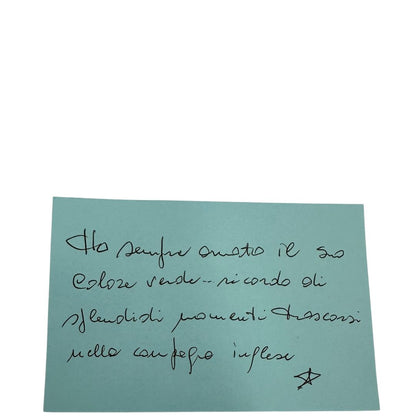 Ho sempre amato il suo
colore verde.. ricordo di
splendidi momenti trascorsi
nella campagna inglese